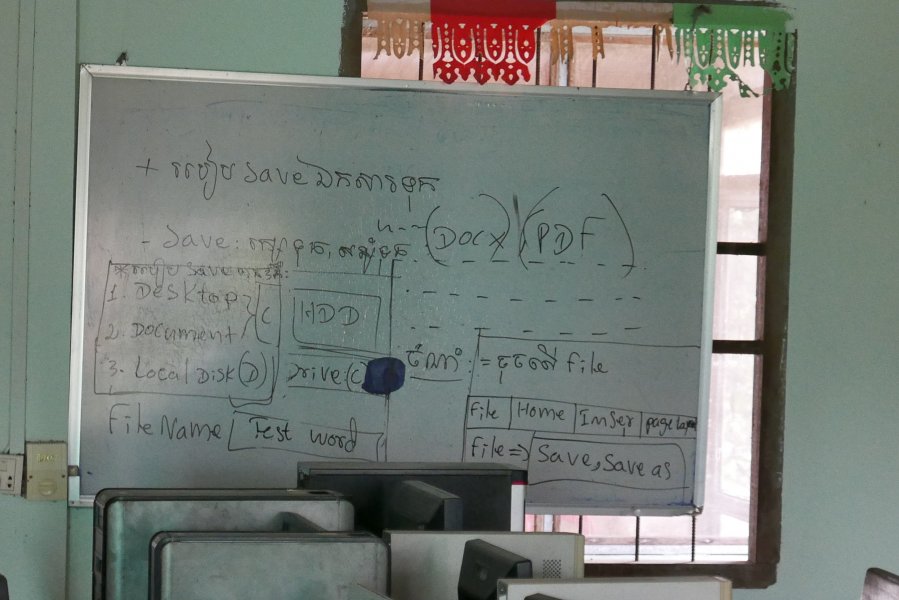 + របៀប save ឯកសារទុក
- Save: រក្សាទុក, (DOCX) (PDF)
របៀប save
1. Desktop
2. Document
3. Local Disk (D)
C
HDD
Drive (C)
File Name Test word
ចំណាំ: = ចុចលើ file
File Home Inser page layou
File => Save, Save as